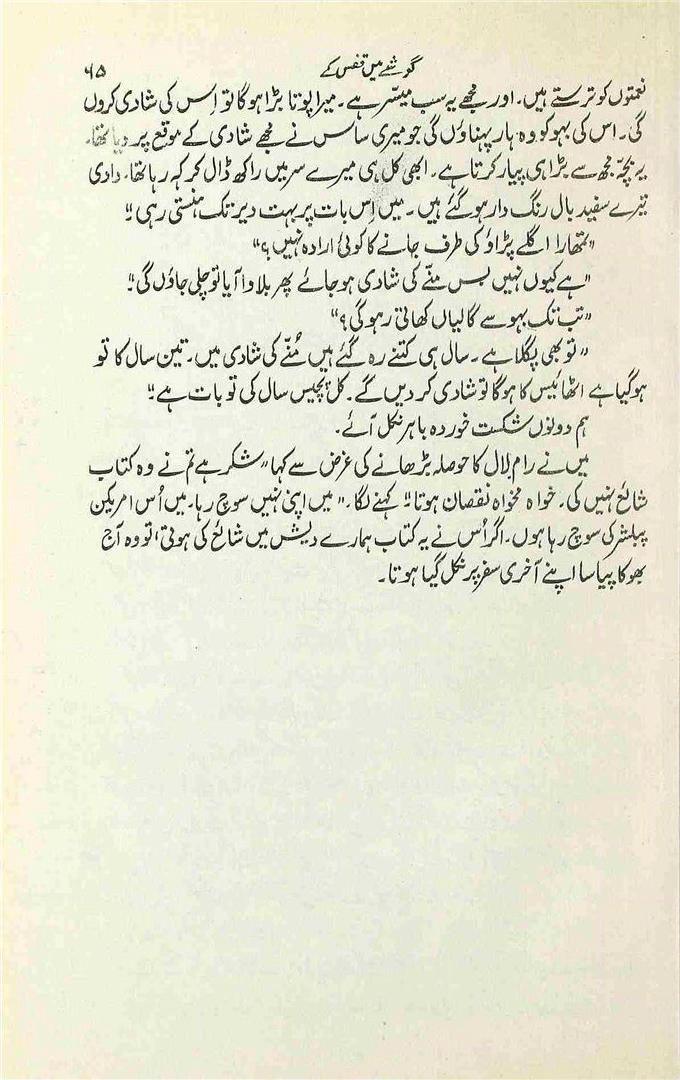 گوشے میں قفس کے ۶۵
نعمتوں کو ترستے ہیں۔ اور مجھے یہ سب میسّر ہے۔ میرا پوتا بڑا ہوگا تو اِس کی شادی کروں
گی۔ اس کی بہو کو وہ ہار پہناؤں گی جو میری ساس نے مجھے شادی کے موقع پر دیا تھا۔
یہ بچّہ مجھ سے بڑا ہی پیار کرتا ہے۔ ابھی کل ہی میرے سر میں راکھ ڈال کر کہہ رہا تھا۔ دادی
تیرے سفید بال رنگ دار ہو گئے ہیں۔ میں اِس بات پر بہت دیر تک ہنستی رہی۔“
”تمھارا اگلے پڑاؤ کی طرف جانے کا کوئی ارادہ نہیں؟“
”ہے کیوں نہیں بس منّے کی شادی ہو جائے پھر بلاوا آیا تو چلی جاؤں گی۔“
”تب تک بہو سے گالیاں کھاتی رہو گی؟“
”تو بھی پگلا ہے۔ سال ہی کتنے رہ گئے ہیں مُنّے کی شادی میں۔ تین سال کا تو
ہو گیا ہے اٹھائیس کا ہوگا تو شادی کر دیں گے۔ کل پچیس سال کی تو بات ہے۔“
ہم دونوں شکست خوردہ باہر نکل آئے۔
میں نے رام لال کا حوصلہ بڑھانے کی غرض سے کہا ”شکر ہے تم نے وہ کتاب
شائع نہیں کی۔ خواہ مخواہ نقصان ہوتا۔“ کہنے لگا۔ ”میں اپنی نہیں سوچ رہا۔ میں اُس امریکن
پبلشر کی سوچ رہا ہوں۔ اگر اُس نے یہ کتاب ہمارے دیش میں شائع کی ہوتی، تو وہ آج
بھوکا پیاسا اپنے آخری سفر پر نکل گیا ہوتا۔